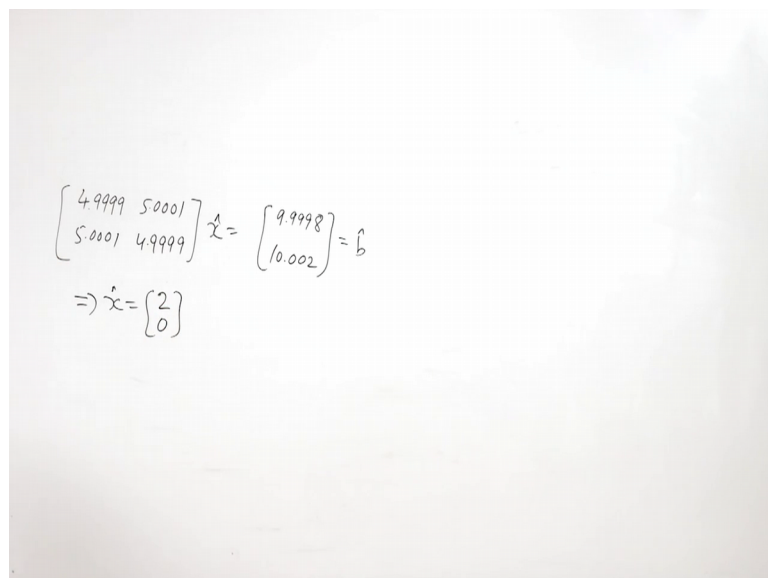 [4.9999 5.0001
5.0001 4.9999] x̂ = [9.9998
10.002] = b̂
⇒ x̂ = [2
0]